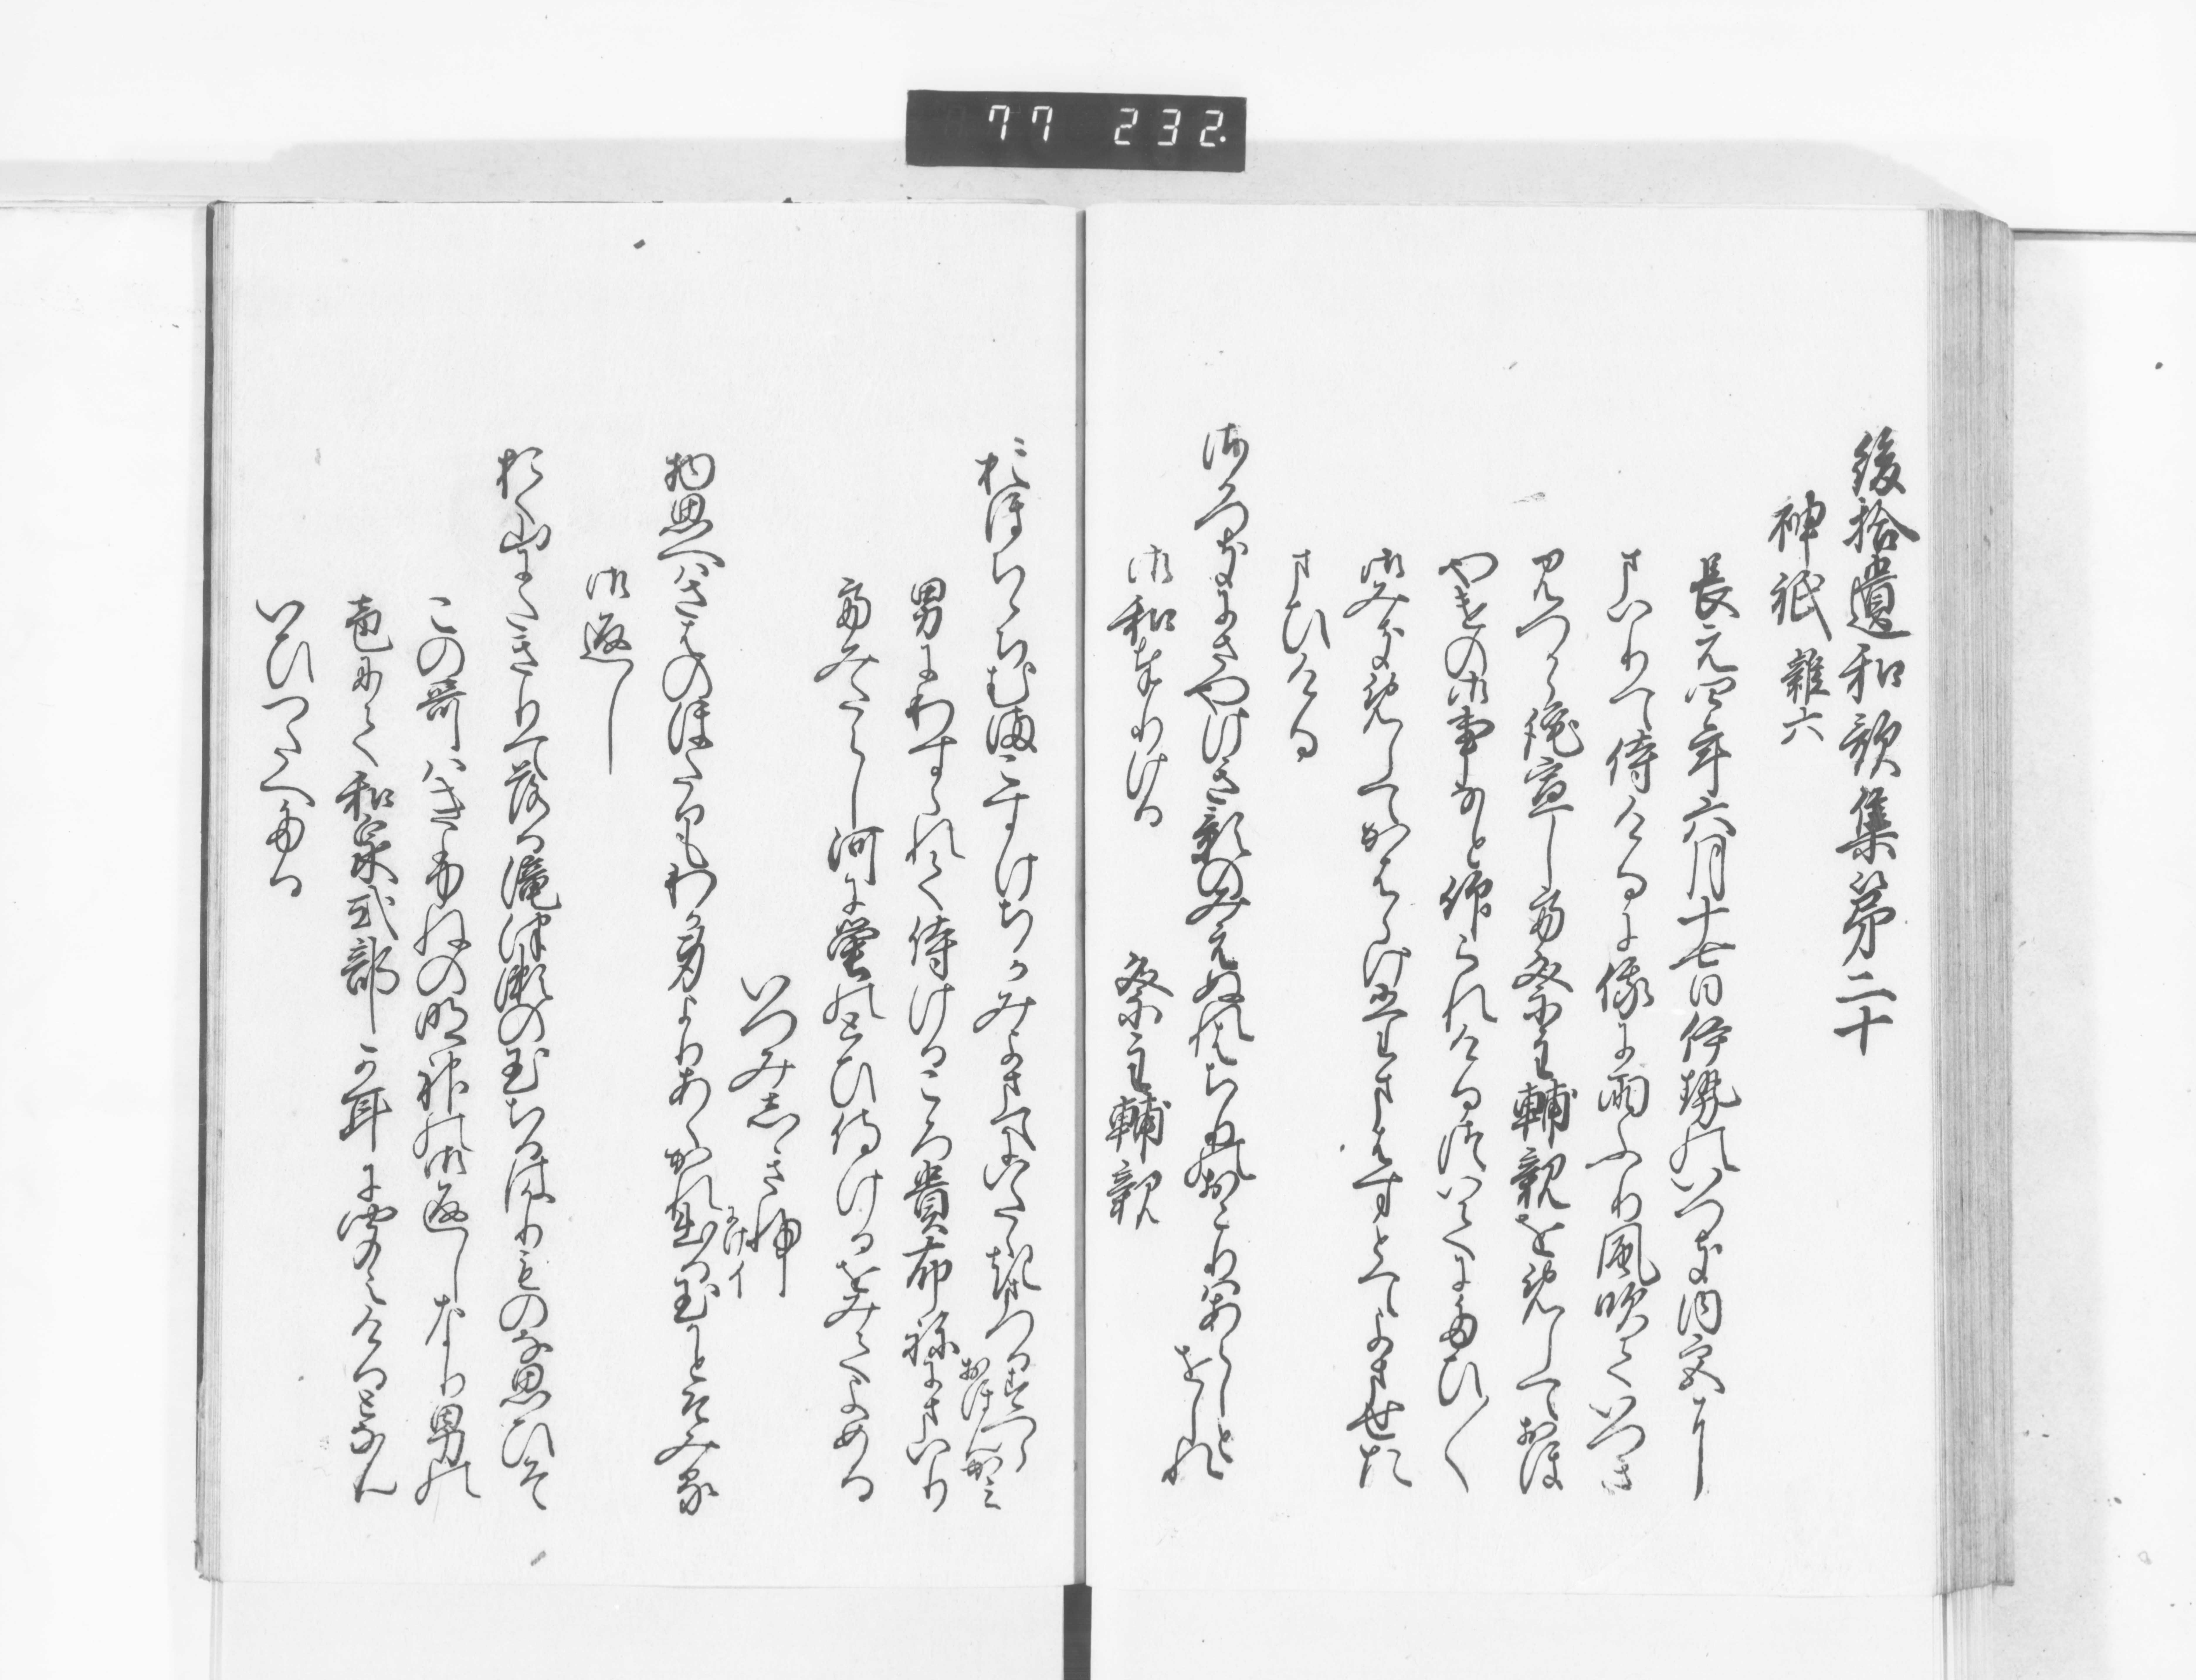 77 232
後拾遺和歌集第二十
神祇 雑六
長元四年六月十七日伊勢のいつき内宮に
まいりて侍けるに俄に雨ふり風吹ていつき
みつから託宣して祭主輔親を召ておほ
やけの御事なと仰られけるついてにたひ〱
御みき召てかはらけ给はすとてよませた
まひける
さかつきにさやけき影のみえぬれはちりのおそりはあらしと
をしれ
御和奉りける 祭主輔親
おほちちちむまこすけちかみよまていたゝきまつるすへら
おほん神
男にわすられて侍けるころ貴布祢にまいり
てみたらし河に蛍のとひ侍けるをみてよめる
いつみしきふ
物思へはさはのほたるもわか身よりあくかれ出る玉かとそみる
にけイ
御返し
おく山にたきりて落る滝津瀬の玉ちるはかりものな思ひそ
この哥はきふねの明神の御返しなり男の
声にて和泉式部か耳に聞えけるとなん
いひつたへたる